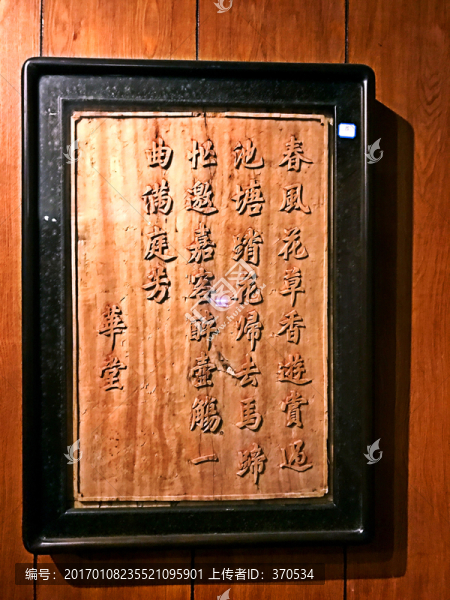 春風花草香遊賞過
池塘踏花歸去馬蹄
忙邀嘉客醉壺觴一
曲滿庭芳
華堂
编号:20170108235521095901 上传者ID:370534